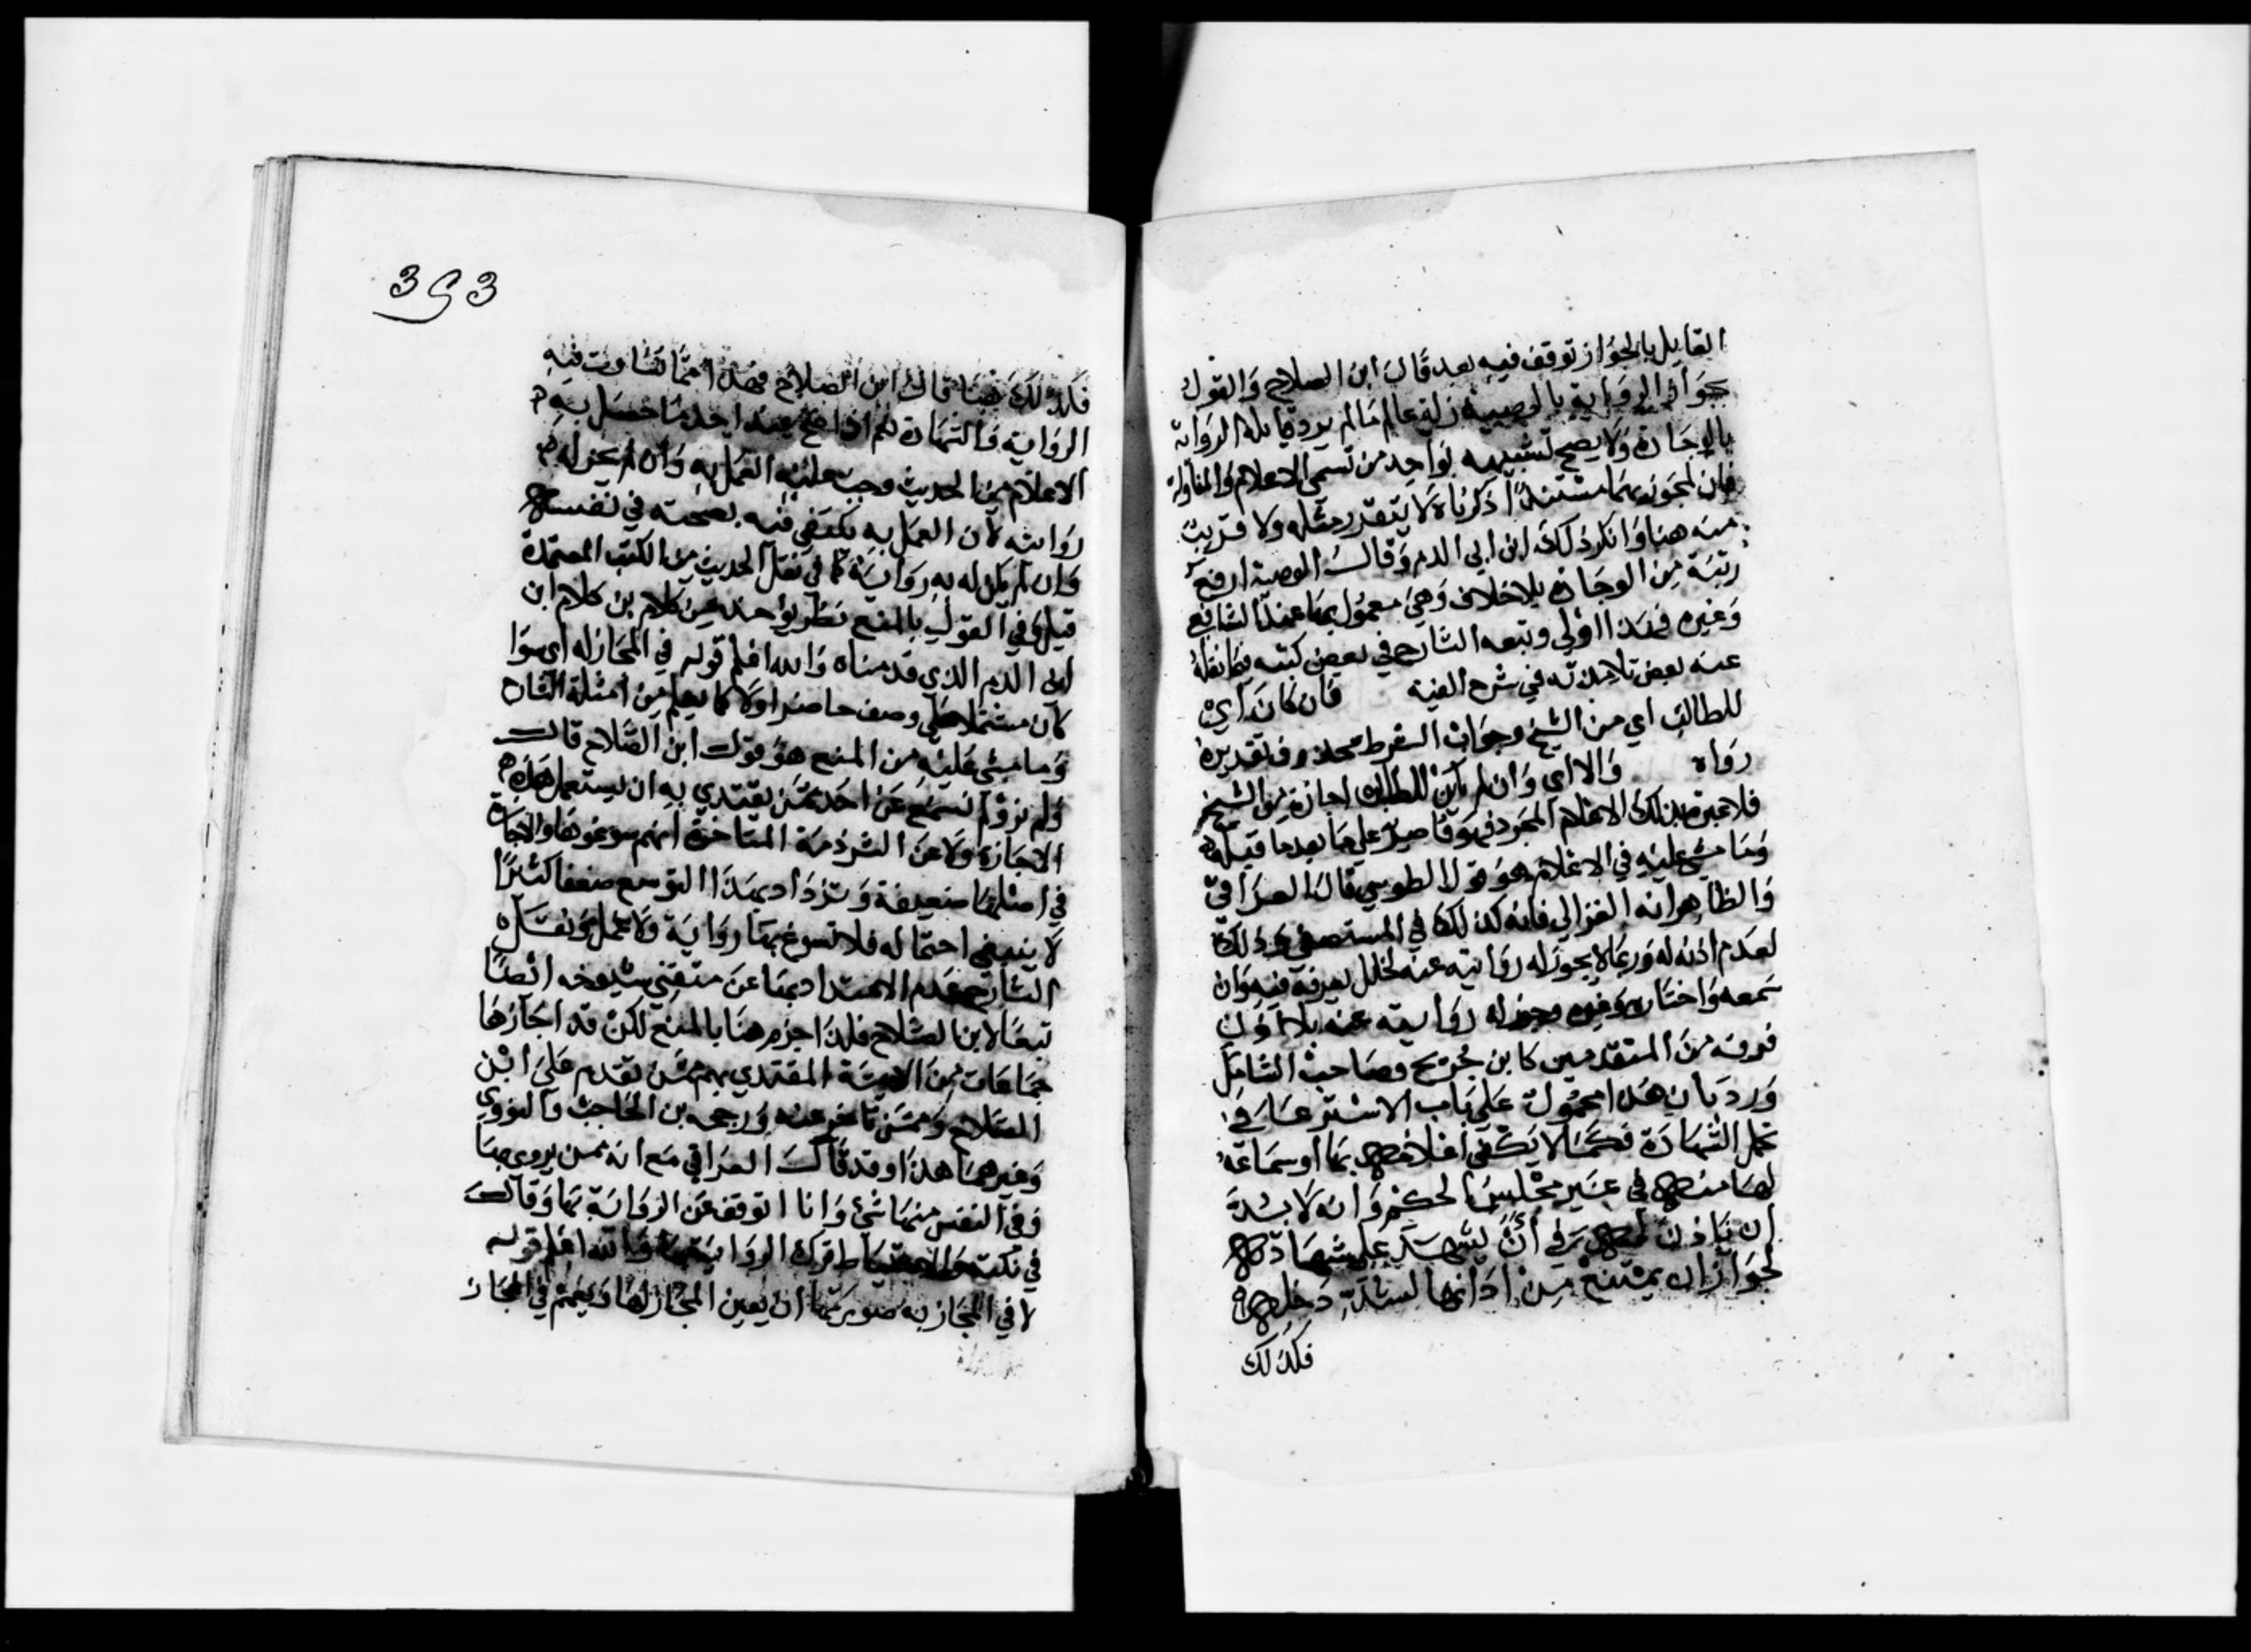 القايل بالجواز توقف فيه بعد قال ابن الصلاح والقول
بجواز الرواية بالوصية زلة عالم ما لم يرد قايله الرواية
بالوجادة ولا يصح تشبيهه بواحد من قسمي الاعلام والمناولة
فان لمجوزيهما مستندا ذكرناه لا يتقدر مثله ولا قريب
منه هنا وانكر ذلك ابن ابي الدم وقال الوصية ارفع
رتبة من الوجادة بلا خلاف وهي معمول بها عند الشافعي
وغيره فهذا اولى وتبعه الشارح في بعض كتبه فيما نقله
عنه بعض تلامذته في شرح الفيته فان كان اي
للطالب اي من الشيخ وجواب الشرط محذوف تقديره
رواه والا اي وان لم يكن للطالب اجازة من الشيخ
فلا عبرة بذلك الاعلام المجرد فهو قاصر على ما بعدها قبله
وما مشى عليه في الاعلام هو قول الطوسي قال العراقي
والظاهر انه الغزالي فانه كذلك في المستصفى وذلك
لعدم اذنه له وربما لا يجوز له روايته عنه لخلل يعرفه فيه وان
سمعه واختار وجوز له روايته عنه بلا اذن
فرقة من المتقدمين كابن جريج وصاحب الشامل
ورد بان هذا محمول على باب الاسترعا في
تحمل الشهادة فكما لا يكفي اعلامهم بها او سماعه
لها منهم في غير مجلس الحكم وانه لا بد
ان ياذن لهم في ان يشهد على شهادتهم
لجواز ان يمتنع من ادائها لشك دخلهم
فكذلك
393
فكذلك هنا قال ابن الصلاح فهذا مما تساوت فيه
الرواية والشهادة نعم اذا صح عند احد ما حصل به
الاعلام من الحديث وجب عليه العمل به وان لم يجز له
روايته لان العمل به يكتفي فيه بصحته في نفسه
وان لم يكن له به رواية كما في نقل الحديث من الكتب المعتمدة
قيل وفي القول بالمنع نظر يؤخذ من كلام بن كلام ابن
ابي الدم الذي قدمناه والله اعلم قوله في المجاز له اي سوا
كان مشتملا على وصف حاصر او لا كما يعلم من امثلة الشارح
وما مشى عليه من المنع هو قول ابن الصلاح قال
ولم نر ولم نسمع عن احد ممن يقتدي به ان يستعمل هذه
الاجازة ولا عن الشرذمة المتاخرة انهم سوغوها والاجازة
في اصلها ضعيفة وتزداد بهذا التوسع ضعفا كثيرا
لا ينبغي احتماله فلا تسوغ بها رواية ولا عمل ونقل
الشارح عدم الاعتداد بها عن متقني شيوخه ايضا
تبعا لابن الصلاح فلذا جزم هنا بالمنع لكن قد اجازها
جماعات من الايمة المقتدي بهم ممن تقدم على ابن
الصلاح وممن تاخر عنه ورجحه بن الحاجب والنووي
وغيرهما هذا وقد قال العراقي مع انه ممن يروي بها
وفي النفس منها شئ وانا اتوقف عن الرواية بها وقال
في نكته والاحتياط ترك الرواية بها والله اعلم قوله
لا في المجاز به صورتها ان يعين المجاز لها ويعمم في المجاز